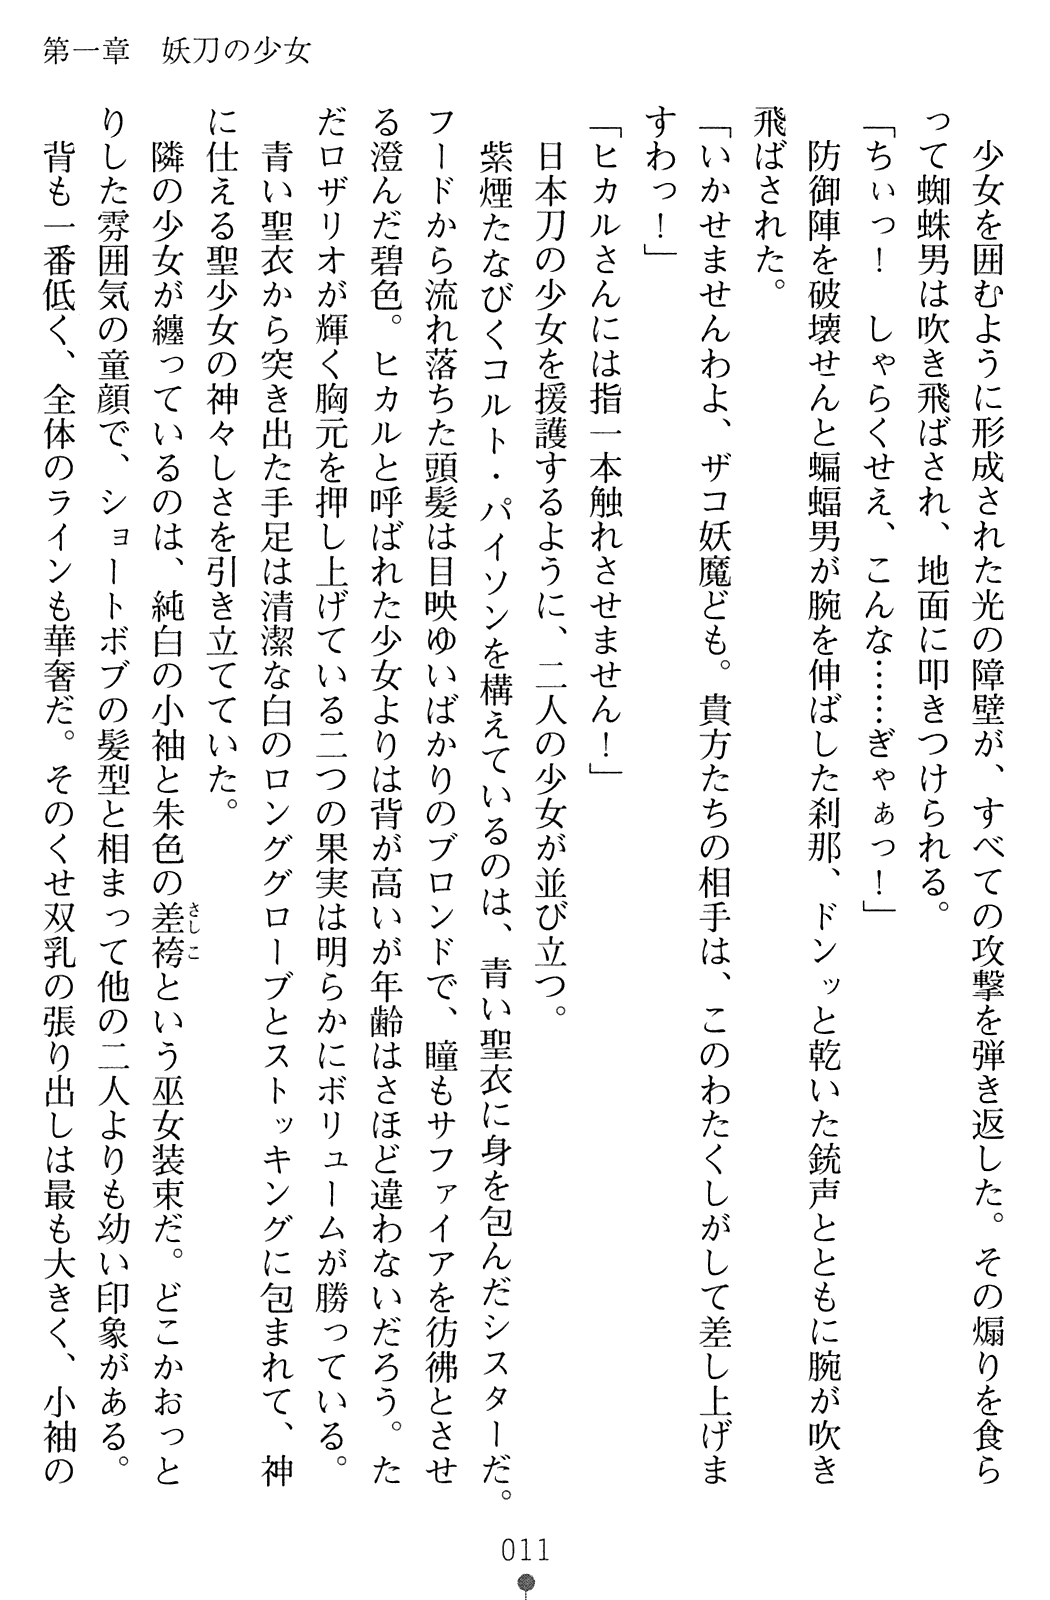 第一章　妖刀の少女
　少女を囲むように形成された光の障壁が、すべての攻撃を弾き返した。その煽りを食ら
って蜘蛛男は吹き飛ばされ、地面に叩きつけられる。
「ちぃっ！　しゃらくせえ、こんな……ぎゃぁっ！」
　防御陣を破壊せんと蝙蝠男が腕を伸ばした刹那、ドンッと乾いた銃声とともに腕が吹き
飛ばされた。
「いかせませんわよ、ザコ妖魔ども。貴方たちの相手は、このわたくしがして差し上げま
すわっ！」
「ヒカルさんには指一本触れさせません！」
　日本刀の少女を援護するように、二人の少女が並び立つ。
　紫煙たなびくコルト・パイソンを構えているのは、青い聖衣に身を包んだシスターだ。
フードから流れ落ちた頭髪は目映ゆいばかりのブロンドで、瞳もサファイアを彷彿とさせ
る澄んだ碧色。ヒカルと呼ばれた少女よりは背が高いが年齢はさほど違わないだろう。た
だロザリオが輝く胸元を押し上げている二つの果実は明らかにボリュームが勝っている。
　青い聖衣から突き出た手足は清潔な白のロンググローブとストッキングに包まれて、神
に仕える聖少女の神々しさを引き立てていた。
　隣の少女が纏っているのは、純白の小袖と朱色の差袴さしこという巫女装束だ。どこかおっと
りした雰囲気の童顔で、ショートボブの髪型と相まって他の二人よりも幼い印象がある。
　背も一番低く、全体のラインも華奢だ。そのくせ双乳の張り出しは最も大きく、小袖の
011